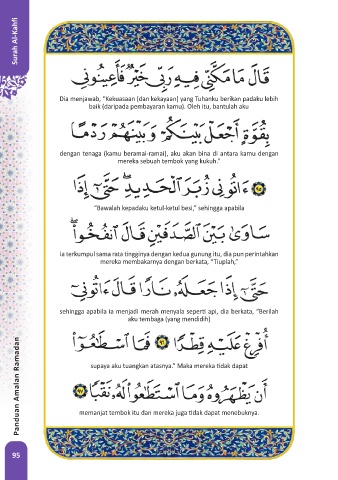 Surah Al-Kahfi
قَالَ مَا مَكَّنِّى فِيهِ رَبِّى خَيْرٌ فَأَعِينُونِى
Dia menjawab, "Kekuasaan (dan kekayaan) yang Tuhanku berikan padaku lebih
baik (daripada pembayaran kamu). Oleh itu, bantulah aku
بِقُوَّةٍ أَجْعَلْ بَيْنَكُمْ وَبَيْنَهُمْ رَدْمًا
dengan tenaga (kamu beramai-ramai), aku akan bina di antara kamu dengan
mereka sebuah tembok yang kukuh."
٩٥ ءَاتُونِى زُبَرَ ٱلْحَدِيدِ ۖ حَتَّىٰٓ إِذَا
"Bawalah kepadaku ketul-ketul besi," sehingga apabila
سَاوَىٰ بَيْنَ ٱلصَّدَفَيْنِ قَالَ ٱنفُخُوا۟ ۖ
ia terkumpul sama rata tingginya dengan kedua gunung itu, dia pun perintahkan
mereka membakarnya dengan berkata, "Tiuplah,"
حَتَّىٰٓ إِذَا جَعَلَهُۥ نَارًا قَالَ ءَاتُونِىٓ
sehingga apabila ia menjadi merah menyala seperti api, dia berkata, "Berilah
aku tembaga (yang mendidih)
أُفْرِغْ عَلَيْهِ قِطْرًا ٩٦ فَمَا ٱسْطَـٰعُوٓا۟
supaya aku tuangkan atasnya." Maka mereka tidak dapat
أَن يَظْهَرُوهُ وَمَا ٱسْتَطَـٰعُوا۟ لَهُۥ نَقْبًا ٩٧
memanjat tembok itu dan mereka juga tidak dapat menebuknya.
Panduan Amalan Ramadan
95